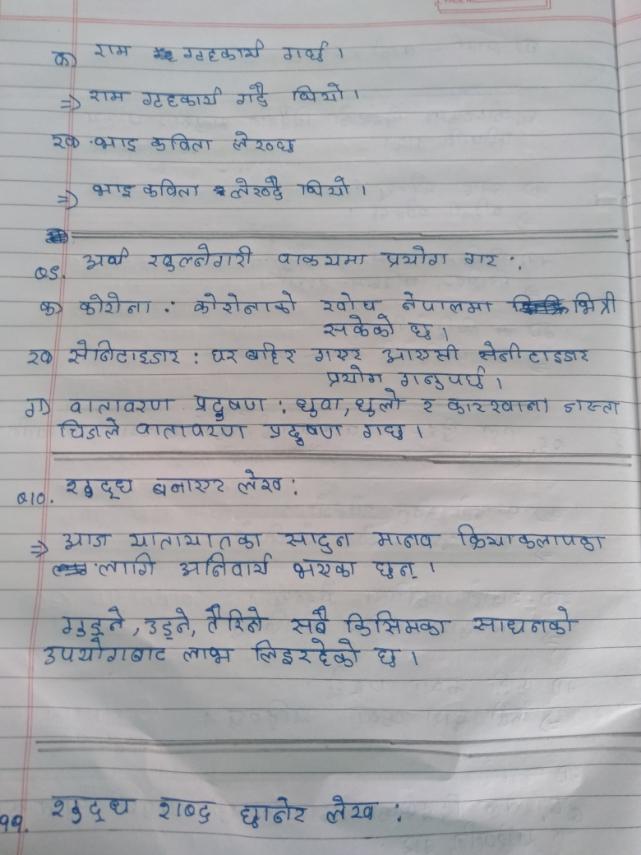 क) राम गृहकार्य गर्छ।
=> राम गृहकार्य गर्दै थियो।
ख) भाइ कविता लेख्छ
=> भाइ कविता लेख्दै थियो।
Q5. अर्थ खुल्नेगरी वाक्यमा प्रयोग गर:
क) कोरोना : कोरोनाको खोप नेपालमा भित्री
सकेको छ।
ख) सेनिटाइजर : घर बाहिर गएर आएसी सेनीटाइजर
प्रयोग गनुपर्छ।
ग) वातावरण प्रदुषण : धुवा, धुलो र कारखाना जस्ता
चिजले वातावरण प्रदुषण गर्छ।
Q10. शुद्ध बनाएर लेख:
=> आज यातायातका सादुन मानव क्रियाकलापका
लागि अनिवार्य भएका छन्।
गुड्ने, उड्ने, तैरिने सबै किसिमका साधनको
उपयोगबाट लाभ लिइरहेको छ।
११. शुद्ध शब्द छानेर लेख :